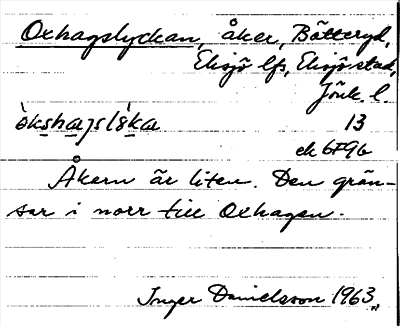 Oxhagslyckan, åker, Bätteryd,
Eksjö lfs, Eksjö stad,
Jönk. l.
òkshagslỳka 13
ek 6F9b
Åkern är liten. Den grän-
sar i norr till Oxhagen.
Inger Danielsson 1963